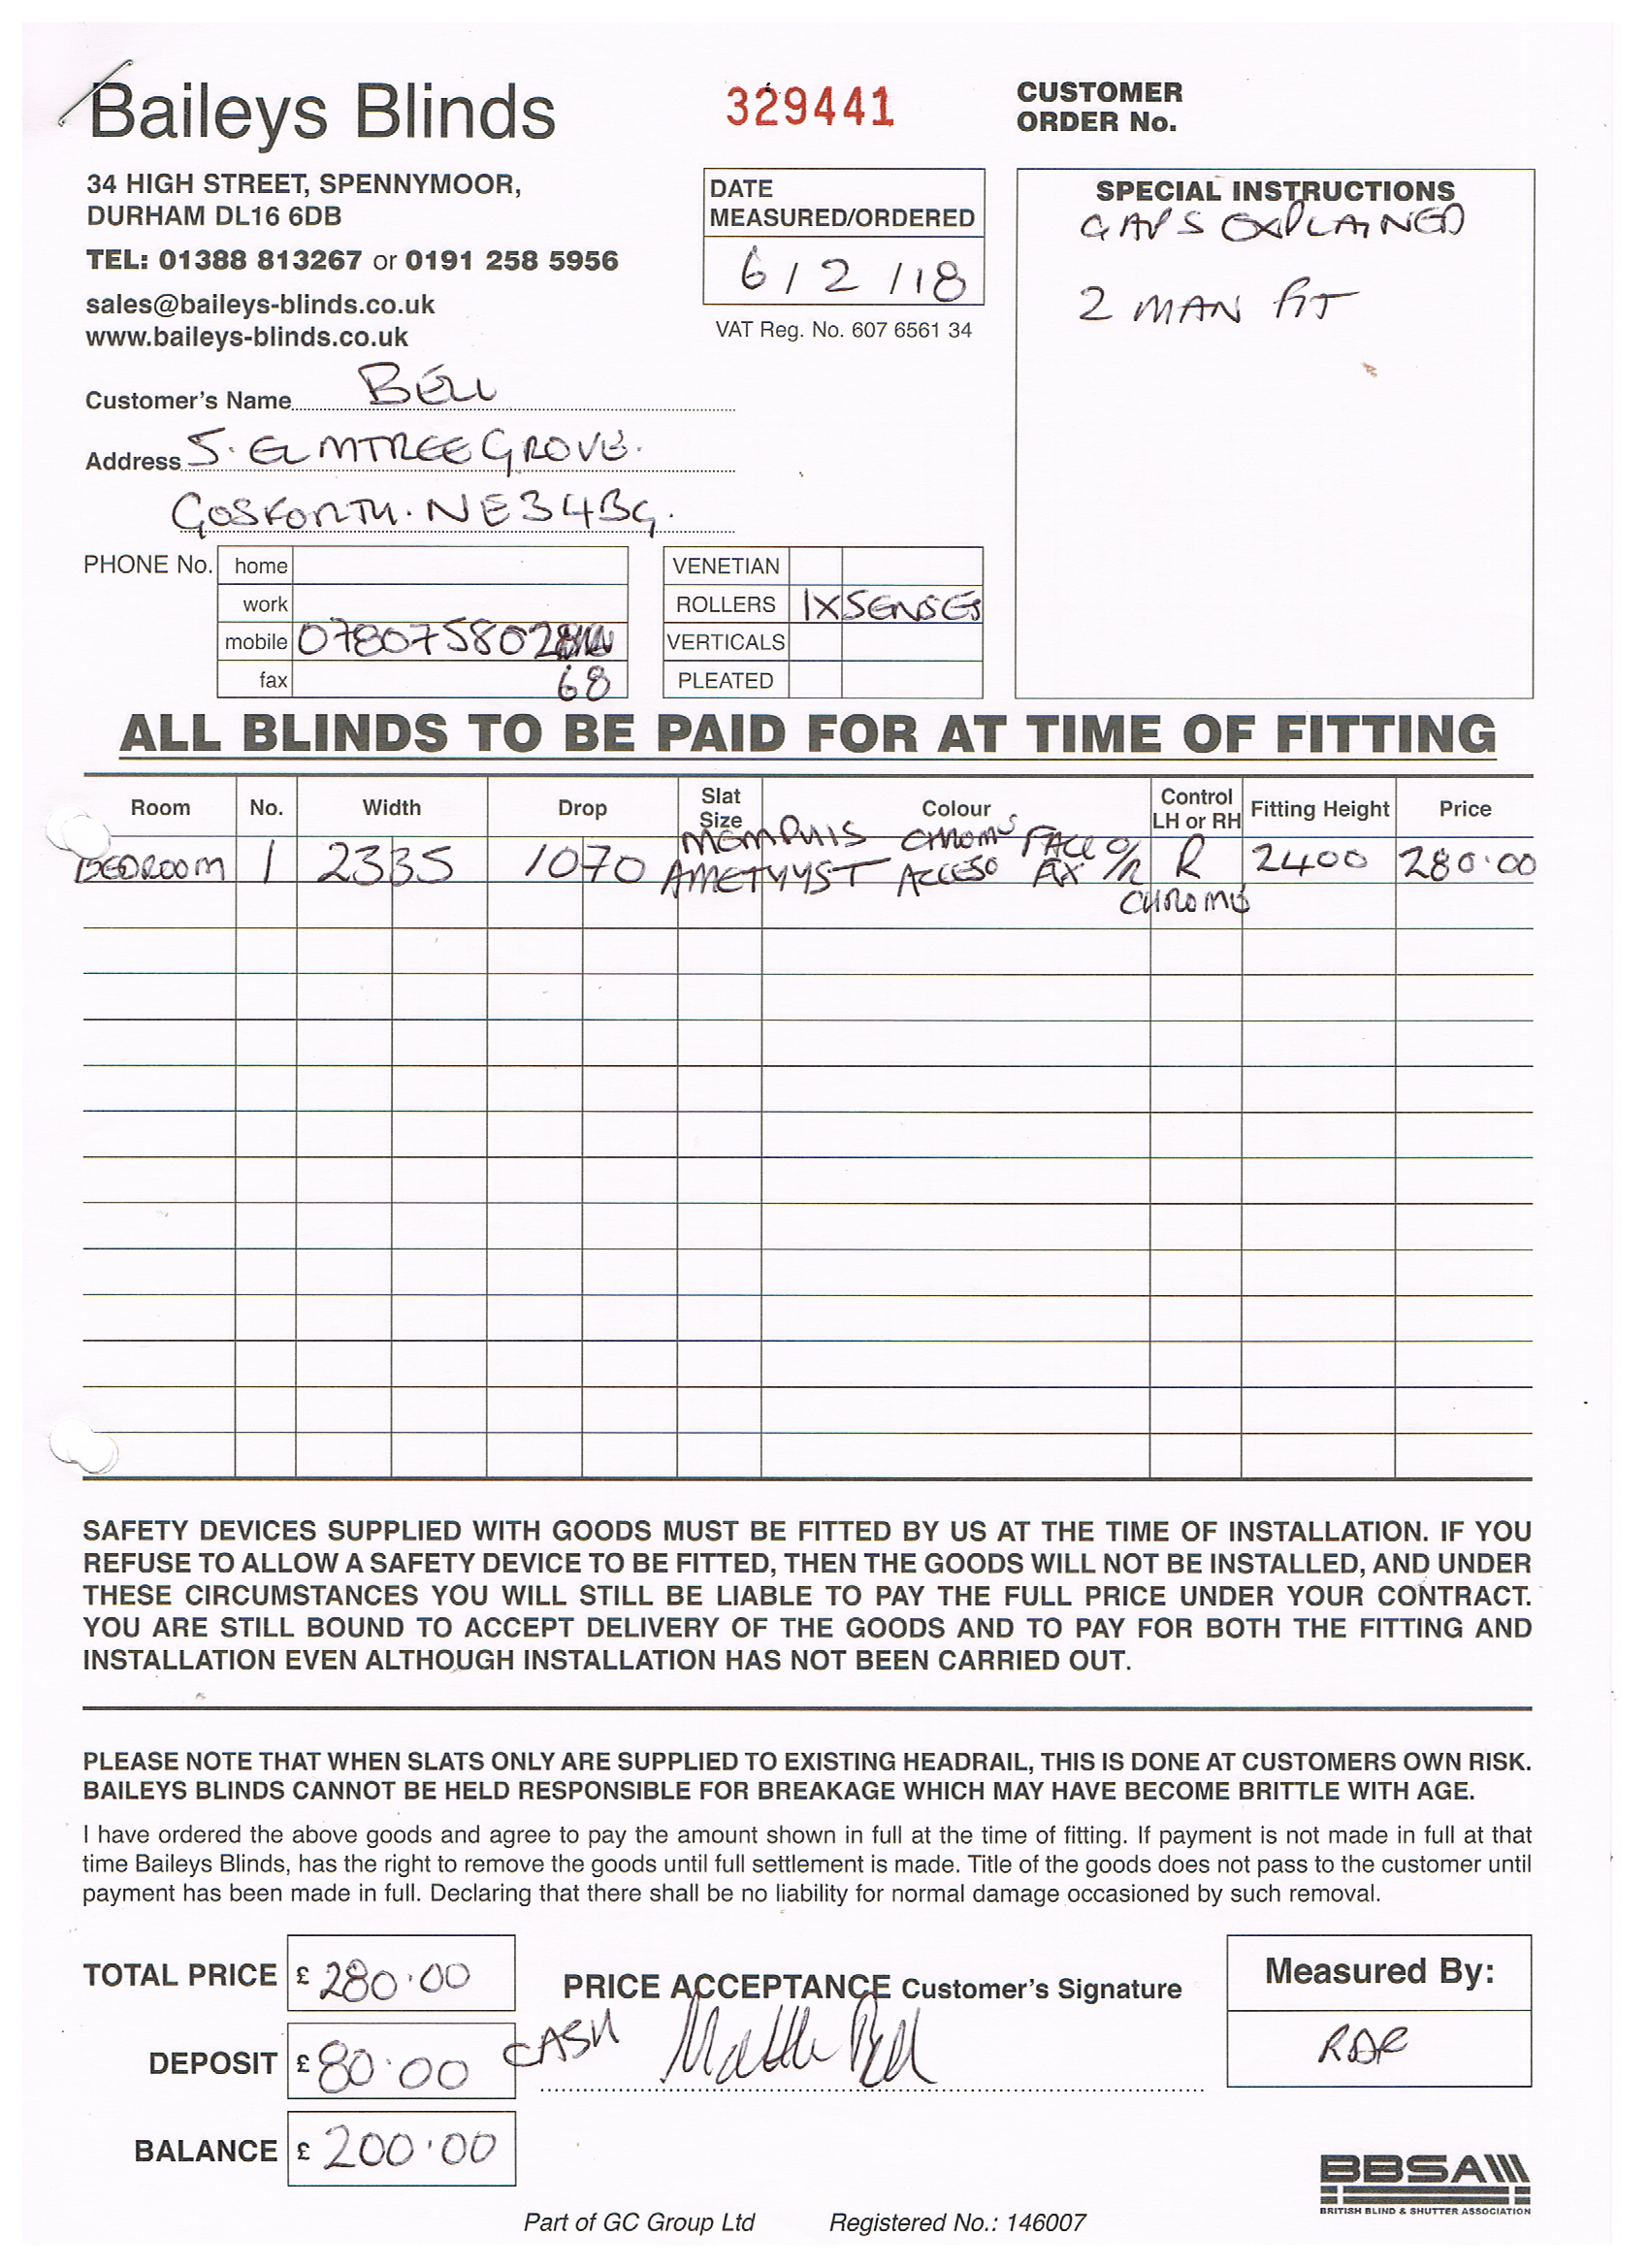 Baileys Blinds
329441
CUSTOMER
ORDER No.
34 HIGH STREET, SPENNYMOOR,
DURHAM DL16 6DB
TEL: 01388 813267 or 0191 258 5956
sales@baileys-blinds.co.uk
www.baileys-blinds.co.uk
DATE
MEASURED/ORDERED
6/2/18
VAT Reg. No. 607 6561 34
SPECIAL INSTRUCTIONS
GAPS EXPLAINED
2 MAN FIT
Customer's Name BELL
Address 5. ELMTREE GROVE.
GOSFORTH. NE3 4BG.
PHONE No. home
work
mobile 0780758028
fax 68
VENETIAN
ROLLERS 1X SENSES
VERTICALS
PLEATED
ALL BLINDS TO BE PAID FOR AT TIME OF FITTING
Room No. Width Drop Slat Size Colour Control LH or RH Fitting Height Price
MEMPHIS CHROME FACE O/
BEDROOM 1 2335 1070 AMETHYST ACCESO FIX R R 2400 280.00
CHROME
SAFETY DEVICES SUPPLIED WITH GOODS MUST BE FITTED BY US AT THE TIME OF INSTALLATION. IF YOU
REFUSE TO ALLOW A SAFETY DEVICE TO BE FITTED, THEN THE GOODS WILL NOT BE INSTALLED, AND UNDER
THESE CIRCUMSTANCES YOU WILL STILL BE LIABLE TO PAY THE FULL PRICE UNDER YOUR CONTRACT.
YOU ARE STILL BOUND TO ACCEPT DELIVERY OF THE GOODS AND TO PAY FOR BOTH THE FITTING AND
INSTALLATION EVEN ALTHOUGH INSTALLATION HAS NOT BEEN CARRIED OUT.
PLEASE NOTE THAT WHEN SLATS ONLY ARE SUPPLIED TO EXISTING HEADRAIL, THIS IS DONE AT CUSTOMERS OWN RISK.
BAILEYS BLINDS CANNOT BE HELD RESPONSIBLE FOR BREAKAGE WHICH MAY HAVE BECOME BRITTLE WITH AGE.
I have ordered the above goods and agree to pay the amount shown in full at the time of fitting. If payment is not made in full at that
time Baileys Blinds, has the right to remove the goods until full settlement is made. Title of the goods does not pass to the customer until
payment has been made in full. Declaring that there shall be no liability for normal damage occasioned by such removal.
TOTAL PRICE £ 280.00
PRICE ACCEPTANCE Customer's Signature
Measured By:
DEPOSIT £ 80.00 CASH
RDR
BALANCE £ 200.00
BBSA
BRITISH BLIND & SHUTTER ASSOCIATION
Part of GC Group Ltd Registered No.: 146007